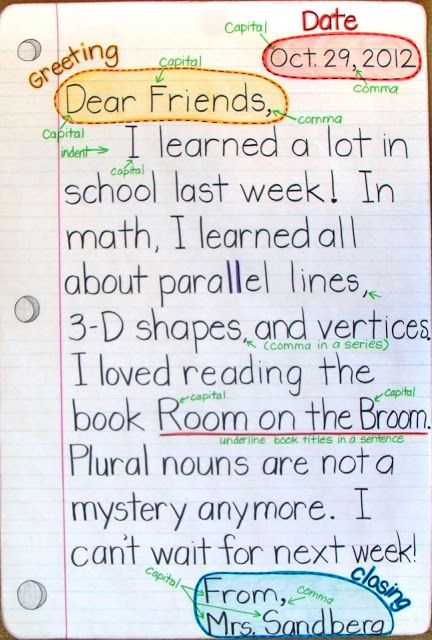 Date
Capital
Oct. 29, 2012
comma
Greeting
capital
Dear Friends,
Capital
comma
indent
I learned a lot in
capital
school last week! In
math, I learned all
about parallel lines,
3-D shapes, and vertices.
(comma in a series)
I loved reading the
capital capital
book Room on the Broom.
underline book titles in a sentence
Plural nouns are not a
mystery anymore. I
can't wait for next week!
closing
capital
From,
comma
Mrs. Sandberg